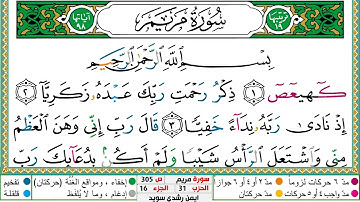 ترتيبها ١٩ سُورَةُ مَرْيَمَ آياتها ٩٨
بِسْمِ ٱللَّهِ ٱلرَّحْمَٰنِ ٱلرَّحِيمِ
كٓهيعٓصٓ ١ ذِكْرُ رَحْمَتِ رَبِّكَ عَبْدَهُۥ زَكَرِيَّآ ٢
إِذْ نَادَىٰ رَبَّهُۥ نِدَآءً خَفِيًّا ٣ قَالَ رَبِّ إِنِّى وَهَنَ ٱلْعَظْمُ
مِنِّى وَٱشْتَعَلَ ٱلرَّأْسُ شَيْبًا وَلَمْ أَكُنۢ بِدُعَآئِكَ رَبِّ
مدّ ٦ حركات لزوماً مدّ ٢ أو ٤ أو ٦ جوازاً سورة مريم ص 305 إخفاء، ومواقع الغنّة (حركتان) تفخيم
مدّ واجب ٤ أو ٥ حركات مدّ حركتان الحزب 31 الجزء 16 إدغام، وما لا يُلفظ قلقلة
ايمن رشدي سويد